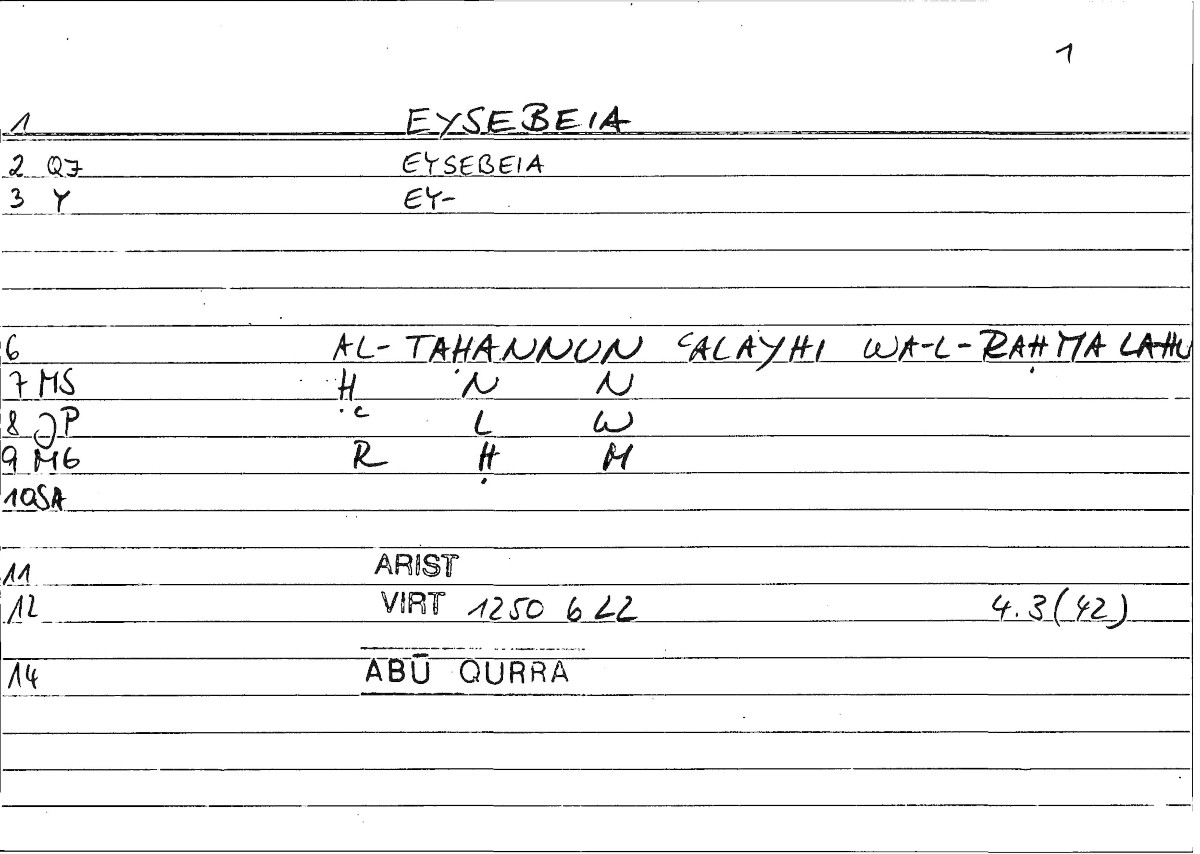 1
1 EYSEBEIA
2 Q7 EYSEBEIA
3 Y EY-
6 AL-TAḤANNUN ʿALAYHI WA-L-RAḤMA LAHU
7 MS Ḥ N N
8 QP ʿ L W
9 M6 R Ḥ M
10 SA
11 ARIST
12 VIRT 1250 b 22 4.3(42)
14 ABŪ QURRA